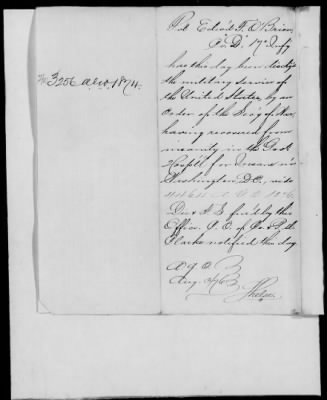 Pvt Edwd F. O'Brien,
Co. "D" 17" Infy
has this day been discharged
the military service of
the United States, by an
order of the Secy of War,
having recovered from
insanity in the Govt
Hospitl for Insane in
Washington D.C., vide
3256 A.G.O. 1874.
Dis & F. S. fur'd by this
Office. C.O. of Co. & P.M.
Clarke notified this day
A.G.O.
Aug.